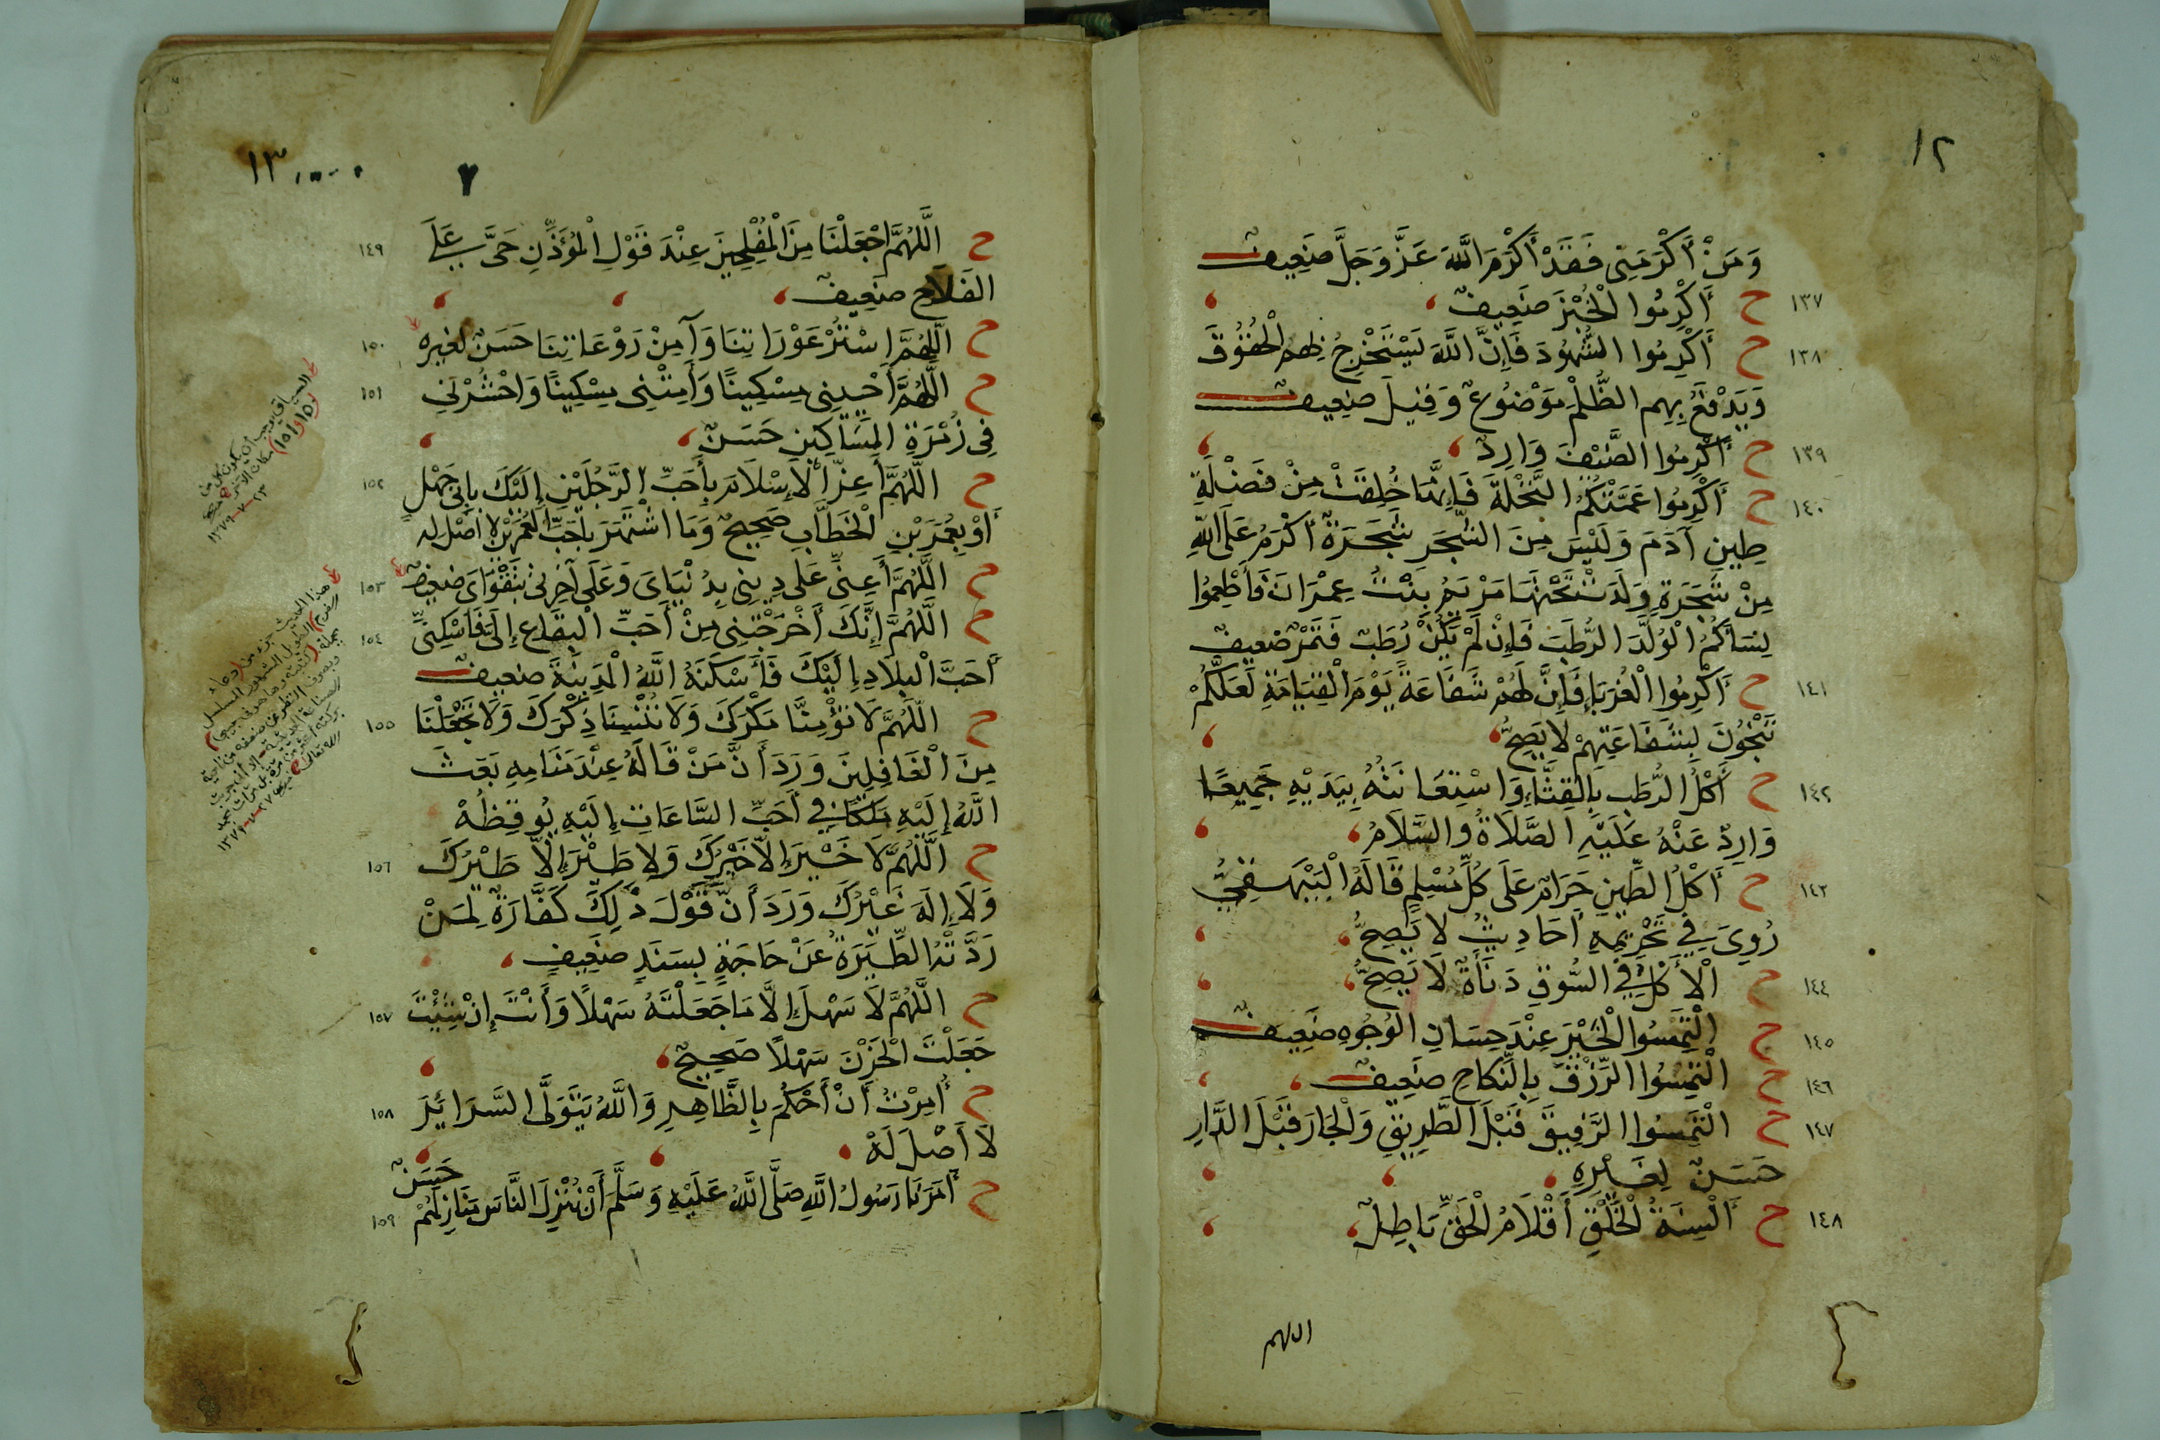 ١٢
وَمَنْ أَكْرَمَنِي فَقَدْ أَكْرَمَ اللَّهَ عَزَّ وَجَلَّ ضَعِيفٌ
١٣٧ ح أَكْرِمُوا الْخُبْزَ ضَعِيفٌ
١٣٨ ح أَكْرِمُوا الشُّهُودَ فَإِنَّ اللَّهَ يَسْتَخْرِجُ بِهِمُ الْحُقُوقَ
وَيَدْفَعُ بِهِمِ الظُّلْمَ مَوْضُوعٌ وَقِيلَ ضَعِيفٌ
١٣٩ ح أَكْرِمُوا الضَّيْفَ وَارِدٌ
١٤٠ ح أَكْرِمُوا عَمَّتَكُمُ النَّخْلَةَ فَإِنَّهَا خُلِقَتْ مِنْ فَضْلَةِ
طِينِ آدَمَ وَلَيْسَ مِنَ الشَّجَرِ شَجَرَةٌ أَكْرَمُ عَلَى اللَّهِ
مِنْ شَجَرَةٍ وَلَدَتْ تَحْتَهَا مَرْيَمُ بِنْتُ عِمْرَانَ فَأَطْعِمُوا
نِسَاءَكُمُ الْوُلَّدَ الرُّطَبَ فَإِنْ لَمْ يَكُنْ رُطَبٌ فَتَمْرٌ ضَعِيفٌ
١٤١ ح أَكْرِمُوا الْغُرَبَاءَ فَإِنَّ لَهُمْ شَفَاعَةً يَوْمَ الْقِيَامَةِ لَعَلَّكُمْ
تَنْجُونَ بِشَفَاعَتِهِمْ لَا يَصِحُّ
١٤٢ ح أَكْلُ الرُّطَبِ بِالْقِثَّاءِ وَاسْتِعَانَتُهُ بِيَدَيْهِ جَمِيعًا
وَارِدٌ عَنْهُ عَلَيْهِ الصَّلَاةُ وَالسَّلَامُ
١٤٣ ح أَكْلُ الطِّينِ حَرَامٌ عَلَى كُلِّ مُسْلِمٍ قَالَهُ الْبَيْهَقِيُّ
رُوِيَ فِي تَحْرِيمِهِ أَحَادِيثُ لَا يَصِحُّ
١٤٤ ح الْأَكْلُ فِي السُّوقِ دَنَاءَةٌ لَا يَصِحُّ
١٤٥ ح الْتَمِسُوا الْخَيْرَ عِنْدَ حِسَانِ الْوُجُوهِ ضَعِيفٌ
١٤٦ ح الْتَمِسُوا الرِّزْقَ بِالنِّكَاحِ ضَعِيفٌ
١٤٧ ح الْتَمِسُوا الرَّفِيقَ قَبْلَ الطَّرِيقِ وَالْجَارَ قَبْلَ الدَّارِ
حَسَنٌ لِغَيْرِهِ
١٤٨ ح أَلْسِنَةُ الْخَلْقِ أَقْلَامُ الْحَقِّ بَاطِلٌ
اللهم
١٣
٧
١٤٩ ح اللَّهُمَّ اجْعَلْنَا مِنَ الْمُفْلِحِينَ عِنْدَ قَوْلِ الْمُؤَذِّنِ حَيَّ عَلَى
الفَلَاح ضَعِيفٌ
١٥٠ ح اللَّهُمَّ اسْتُرْ عَوْرَاتِنَا وَآمِنْ رَوْعَاتِنَا حَسَنٌ لغيره
١٥١ ح اللَّهُمَّ أَحْيِنِي مِسْكِينًا وَأَمِتْنِي مِسْكِينًا وَاحْشُرْنِي
فِي زُمْرَةِ الْمَسَاكِينِ حَسَنٌ
١٥٢ ح اللَّهُمَّ أَعِزَّ الْإِسْلَامَ بِأَحَبِّ الرَّجُلَيْنِ إِلَيْكَ بِأَبِي جَهْلٍ
أَوْ بِعُمَرَ بْنِ الْخَطَّابِ صَحِيحٌ وَمَا اشْتَهَرَ بِأَحَبِّ الْعُمَرَيْنِ لَا أَصْلَ لَهُ
١٥٣ ح اللَّهُمَّ أَعِنِّي عَلَى دِينِي بِدُنْيَايَ وَعَلَى آخِرَتِي بِتَقْوَايَ ضَعِيفٌ
١٥٤ ح اللَّهُمَّ إِنَّكَ أَخْرَجْتَنِي مِنْ أَحَبِّ الْبِقَاعِ إِلَيَّ فَأَسْكِنِّي
أَحَبَّ الْبِلَادِ إِلَيْكَ فَأَسْكَنَهُ اللَّهُ الْمَدِينَةَ ضَعِيفٌ
١٥٥ ح اللَّهُمَّ لَا تُؤْمِنَّا مَكْرَكَ وَلَا تُنْسِنَا ذِكْرَكَ وَلَا تَجْعَلْنَا
مِنَ الْغَافِلِينَ وَرَدَ أَنَّ مَنْ قَالَهُ عِنْدَ مَنَامِهِ بَعَثَ
اللَّهُ إِلَيْهِ مَلَكًا فِي أَحَبِّ السَّاعَاتِ إِلَيْهِ يُوقِظُهُ
١٥٦ ح اللَّهُمَّ لَا خَيْرَ إِلَّا خَيْرُكَ وَلَا طَيْرَ إِلَّا طَيْرُكَ
وَلَا إِلَهَ غَيْرُكَ وَرَدَ أَنَّ قَوْلَ ذَلِكَ كَفَّارَةٌ لِمَنْ
رَدَّتْهُ الطِّيَرَةُ عَنْ حَاجَةٍ بِسَنَدٍ ضَعِيفٍ
١٥٧ ح اللَّهُمَّ لَا سَهْلَ إِلَّا مَا جَعَلْتَهُ سَهْلًا وَأَنْتَ إِنْ شِئْتَ
جَعَلْتَ الْحَزْنَ سَهْلًا صَحِيحٌ
١٥٨ ح أُمِرْتُ أَنْ أَحْكُمَ بِالظَّاهِرِ وَاللَّهُ يَتَوَلَّى السَّرَائِرَ
لَا أَصْلَ لَهُ
١٥٩ ح أَمَرَنَا رَسُولُ اللَّهِ صَلَّى اللَّهُ عَلَيْهِ وَسَلَّمَ أَنْ نُنْزِلَ النَّاسَ مَنَازِلَهُمْ
حَسَنٌ